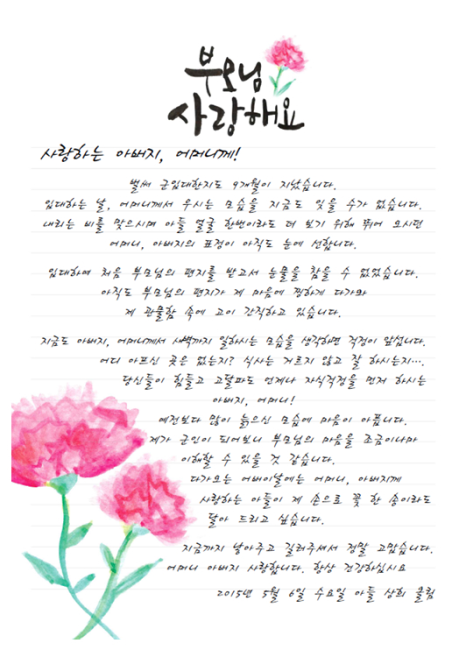 부모님
사랑해요
사랑하는 아버지, 어머니께!
벌써 군입대한지도 9개월이 지났습니다.
입대하는 날, 어머니께서 우시는 모습을 지금도 잊을 수가 없습니다.
내리는 비를 맞으시며 아들 얼굴 한번이라도 더 보기 위해 뛰어 오시던
어머니, 아버지의 표정이 아직도 눈에 선합니다.
입대하여 처음 부모님의 편지를 받고서 눈물을 참을 수 없었습니다.
아직도 부모님의 편지가 제 마음에 찡하게 다가와
제 관물함 속에 고이 간직하고 있습니다.
지금도 아버지, 어머니께서 새벽까지 일하시는 모습을 생각하면 걱정이 앞섭니다.
어디 아프신 곳은 없는지? 식사는 거르지 않고 잘 하시는지….
당신들이 힘들고 고달파도 언제나 자식걱정을 먼저 하시는
아버지, 어머니!
예전보다 많이 늙으신 모습에 마음이 아픕니다.
제가 군인이 되어보니 부모님의 마음을 조금이나마
이해할 수 있을 것 같습니다.
다가오는 어버이날에는 어머니, 아버지께
사랑하는 아들이 제 손으로 꽃 한 송이라도
달아 드리고 싶습니다.
지금까지 낳아주고 길러주셔서 정말 고맙습니다.
어머니 아버지 사랑합니다. 항상 건강하십시요
2015년 5월 6일 수요일 아들 상희 올림